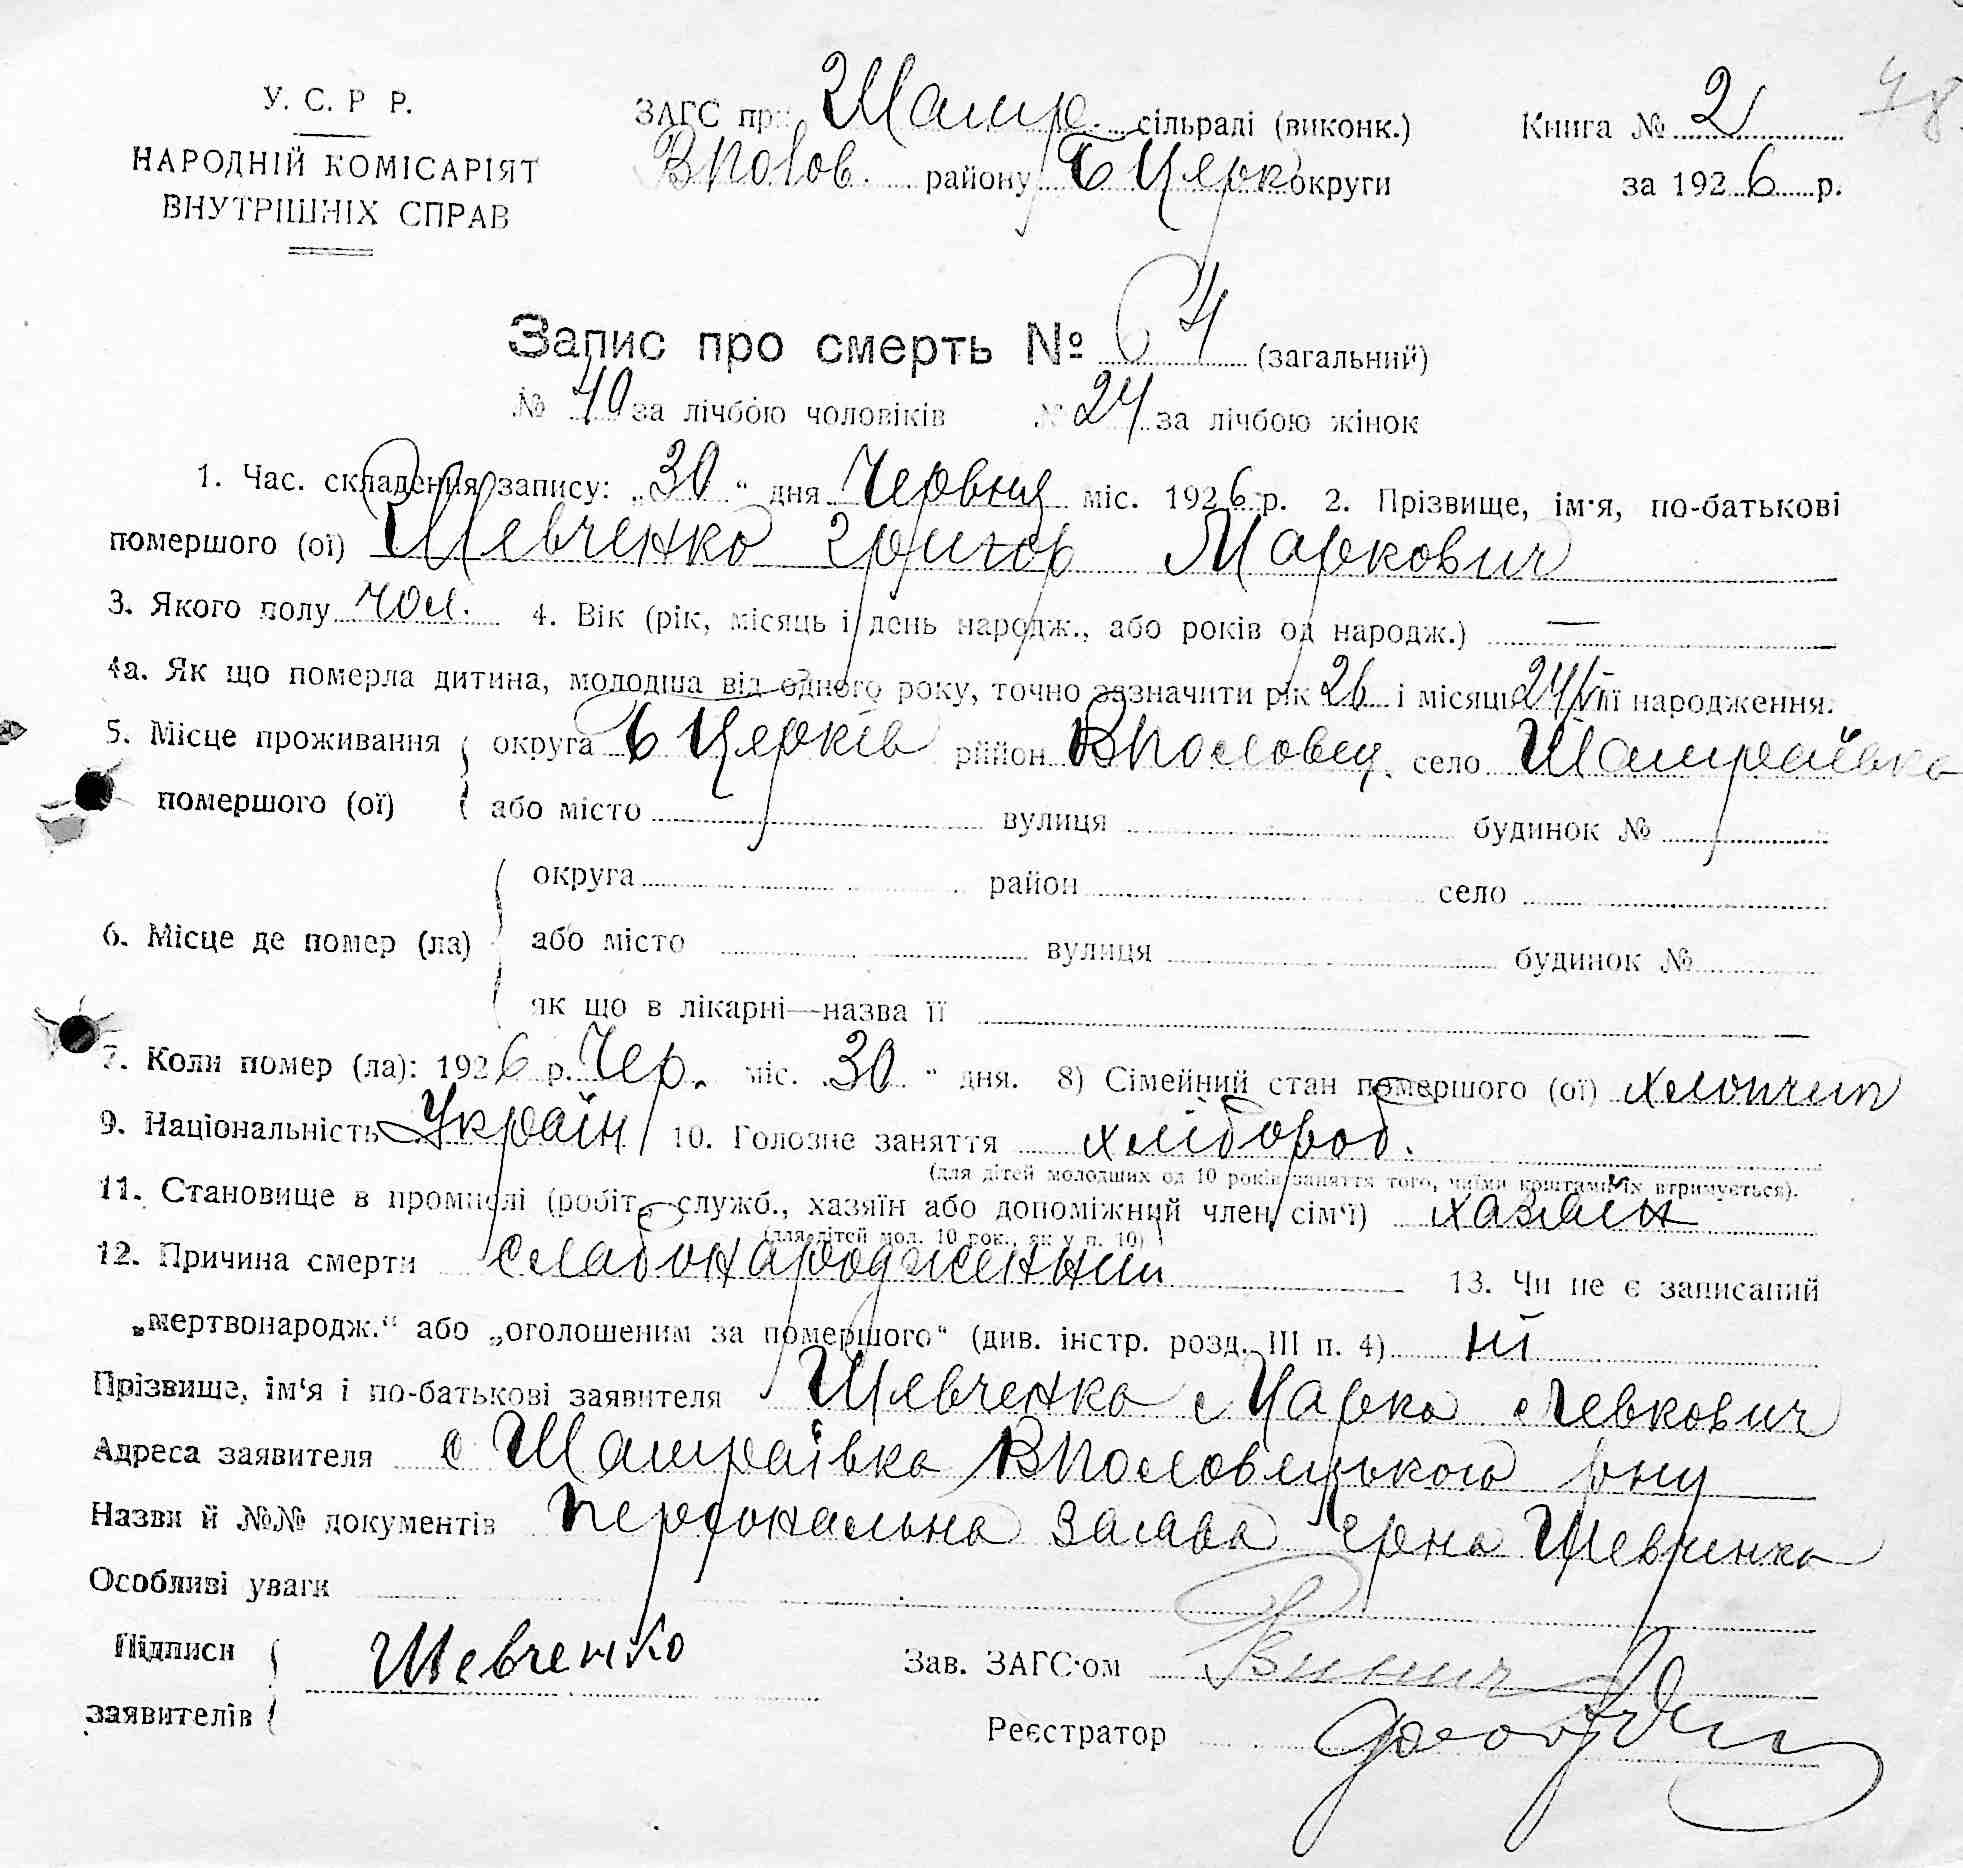 У. С. Р Р.
НАРОДНІЙ КОМІСАРІЯТ
ВНУТРІШНІХ СПРАВ
ЗАГС при Шамр. сільраді (виконк.)
ВПолов. району БЦерк округи
Книга № 2
за 1926 р.
78
Запис про смерть № 64 (загальний)
№ 40 за лічбою чоловіків № 24 за лічбою жінок
1. Час. складення запису: „30“ дня Червня міс. 1926 р. 2. Прізвище, ім'я, по-батькові
помершого (ої) Шевченко Григор Маркович
3. Якого полу чол. 4. Вік (рік, місяць і день народж., або років од народж.) —
4а. Як що померла дитина, молодша від одного року, точно зазначити рік 26 і місяць 24/VI її народження.
5. Місце проживання помершого (ої) округа БЦерків район ВПоловец. село Шамраївка
або місто вулиця будинок №
6. Місце де помер (ла) округа район село
або місто вулиця будинок №
як що в лікарні—назва її
7. Коли помер (ла): 1926 р. Чер. міс. 30 “ дня. 8) Сімейний стан помершого (ої) хлопчик
9. Національність Україн 10. Головне заняття хлібороб.
(для дітей молодших од 10 років заняття того, чиїми коштами їх втримується).
11. Становище в промислі (робіт., служб., хазяїн або допоміжний член сім'ї) хазяїн
(для дітей мол. 10 рок., як у п. 10)
12. Причина смерти слабонароджений 13. Чи не є записаний
„мертвонародж.“ або „оголошеним за помершого“ (див. інстр. розд. III п. 4) ні
Прізвище, ім'я і по-батькові заявителя Шевченко Марко Левкович
Адреса заявителя с Шамраївка ВПоловецького рну
Назви й №№ документів персональна заява грна Шевченка
Особливі уваги
Підписи заявителів Шевченко
Зав. ЗАГС'ом
Реєстратор